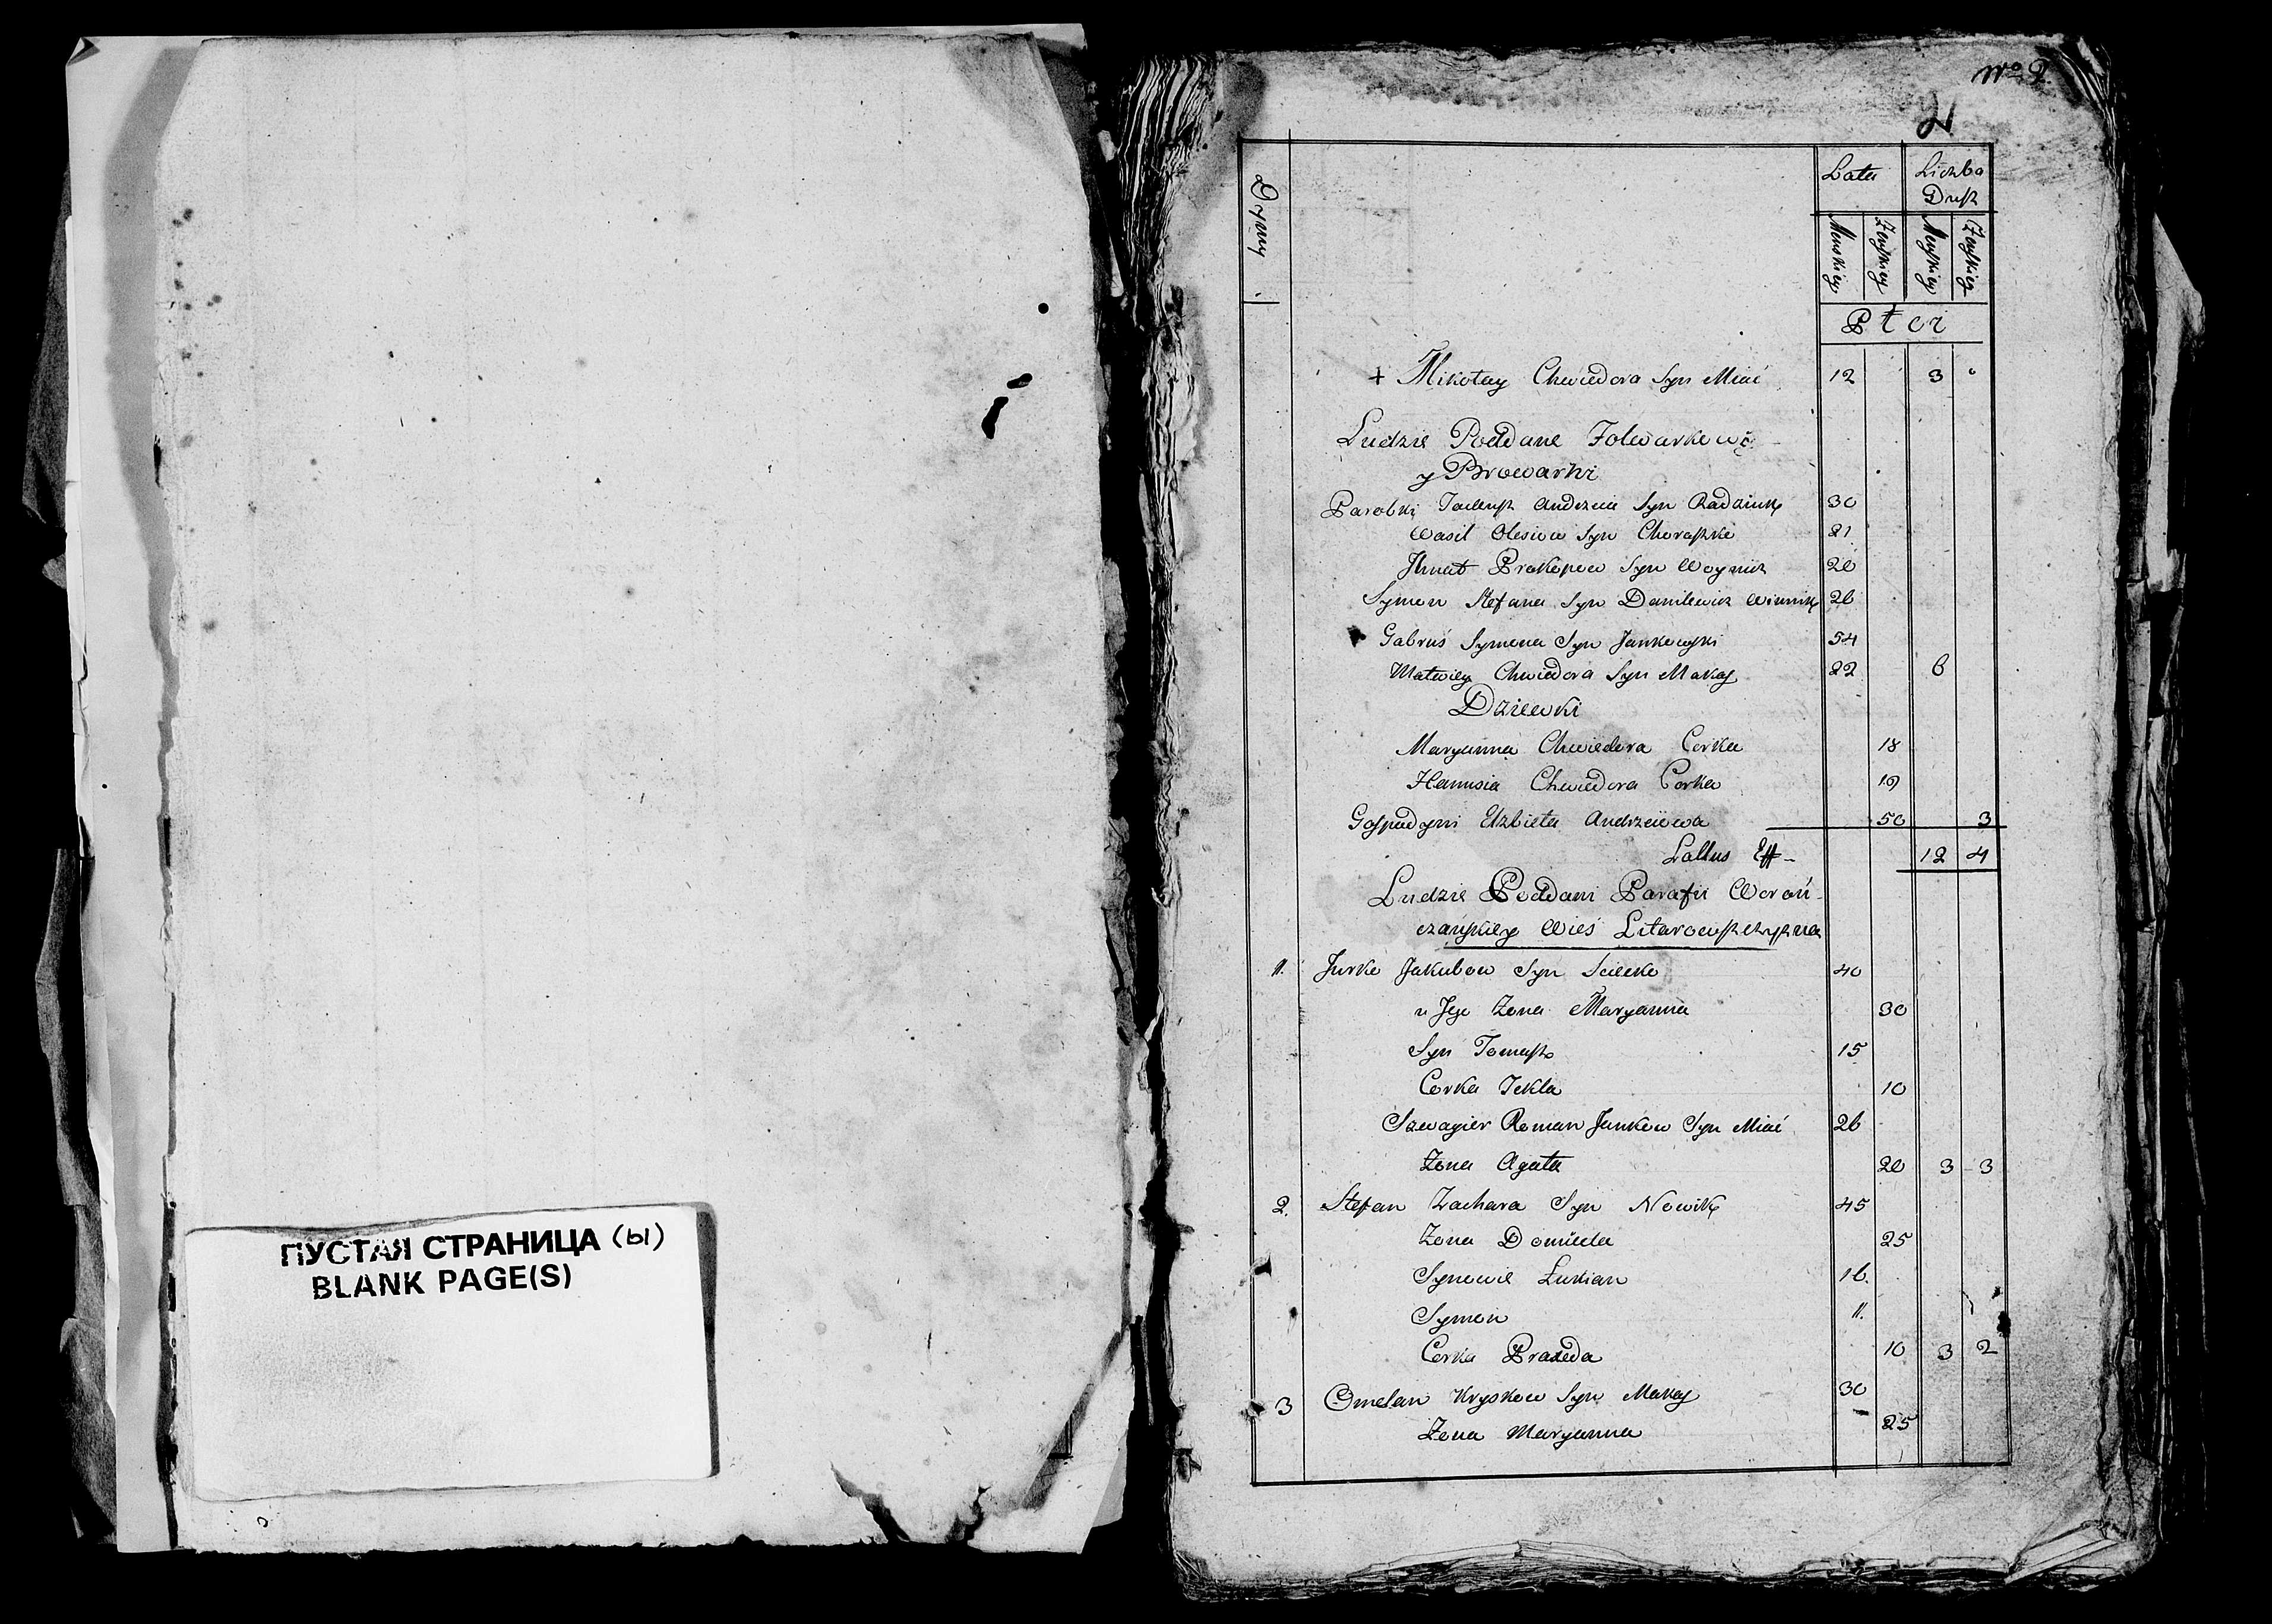 ПУСТАЯ СТРАНИЦА (ы)
BLANK PAGE(S)
No 2
2
Dymy
Lata
Liczba Dusz
Menskiey
Zenskiey
Menskiey
Zenskiey
Płci
+ Mikołay Chwiedora Syn Miać 12 3
Ludzie Poddane Folwarkowe
y Browarki
Parobki Tadeusz Andrzeia Syn Radziuk 30
Wasil Olesiow Syn Choraszko 21
Ihnat Prokopow Syn Woynicz 20
Symon Stefana Syn Danilewicz Winnik 26
Gabruś Symona Syn Jankowski 54
Matwiey Chwiedora Syn Makey 22 6
Dziewki
Maryanna Chwiedora Corka 18
Hanusia Chwiedora Corka 19
Gospodyni Elzbieta Andrzeiowa 50 3
Lattus Eff- 12 4
Ludzie Poddani Parafii Woroń-
czańskiey Wieś Litarowszczyzna
1. Jurko Jakubow Syn Sciecko 40
u Jego Zona Maryanna 30
Syn Tomasz 15
Corka Tekla 10
Szwagier Roman Jankow Syn Miać 26
Zona Agata 20 3 3
2. Stefan Zachara Syn Nowik 45
Zona Domicela 25
Synowie Łukian 16.
Symon 11.
Corka Praxeda 10 3 2
3 Omelan Kryskow Syn Makey 30
Zona Maryanna 25